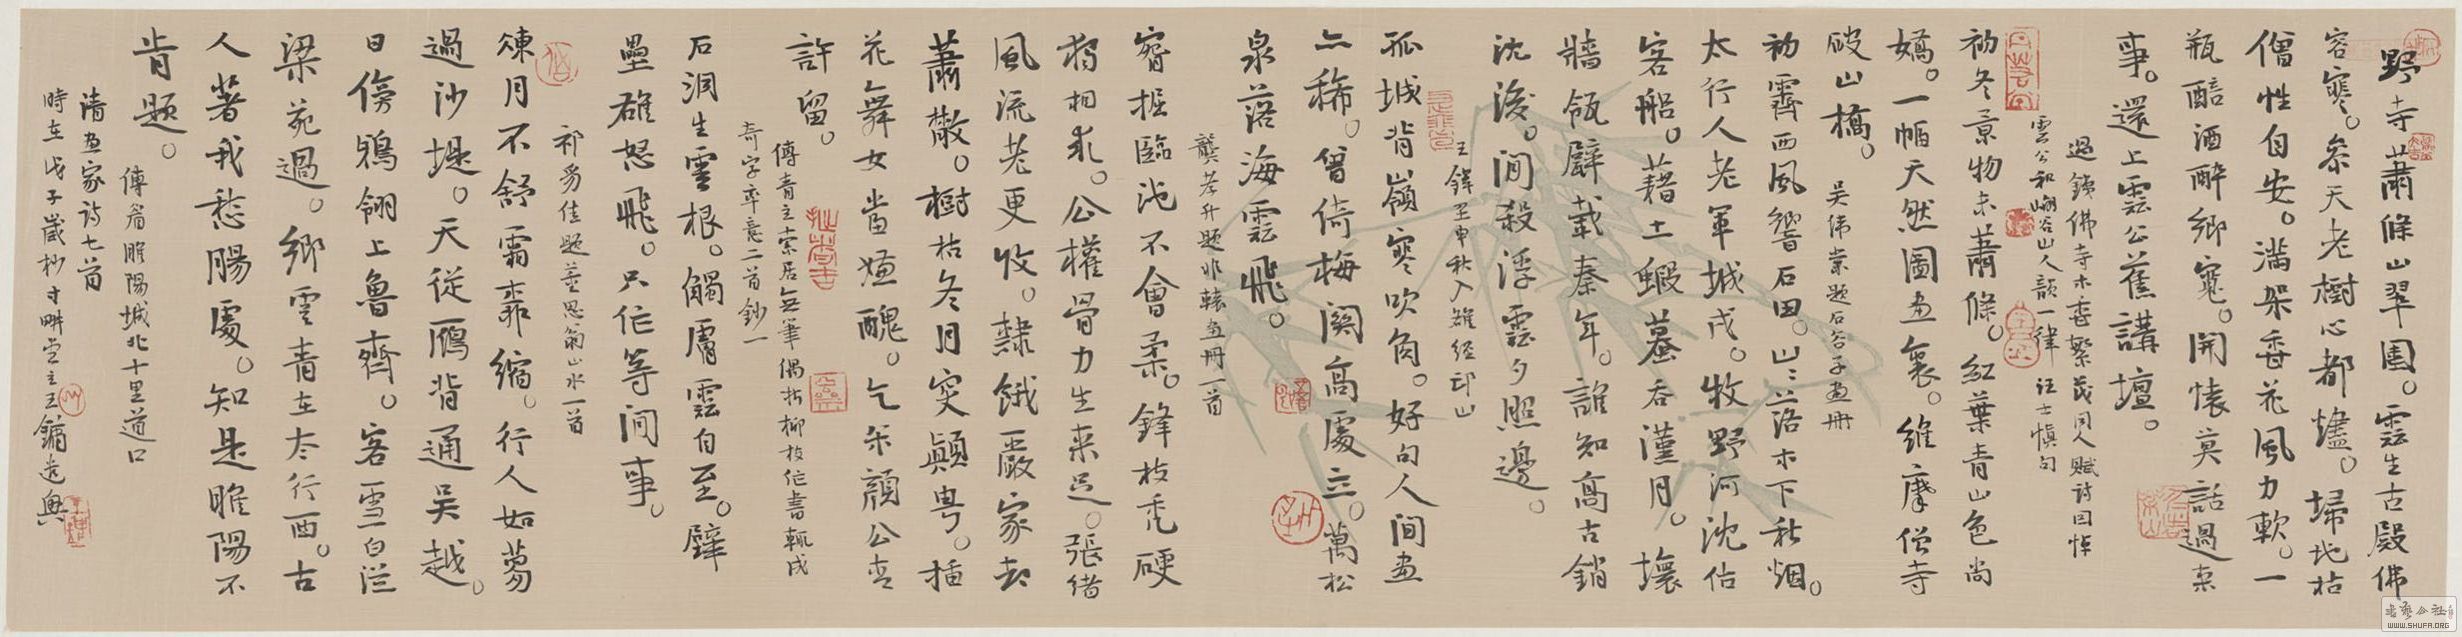 野寺蕭條山翠圍。雲生古殿佛
容寒。參天老樹心都燼。埽地枯
僧性自安。滿架香花風力軟。一
瓶醅酒醉鄉寬。開懷莫話過來
事。還上雲公舊講壇。
過鐵佛寺木香繁茂同人賦詩因悼
雲公和嵋谷山人韻一律 汪士慎句
初冬景物未蕭條。紅葉青山色尚
嬌。一幅天然圖畫裏。維摩僧寺
破山橋。 吳偉業題石谷子畫冊
初霽西風響石田。山山落木下秋烟。
太行人老軍城戍。牧野河沈估
客船。藉土蝦蟇吞漢月。壞
牆瓴甓載秦年。誰知高古銷
沈後。閒殺浮雲夕照邊。
王鐸 壬申秋入雒經邙山
孤城背嶺寒吹角。好句人間畫
亦稀。曾倚梅關高處立。萬松
泉落海雲飛。
龔孝升題 畫冊一首
腕掘臨池不會柔。鋒枝禿硬
獨相求。公權骨力生來足。張緒
風流老更收。隸餓嚴家去
蕭散。樹枯冬月突顛粵。插
花舞女當嫌醜。乞米顏公青
許留。
傅青主索居無筆偶折柳枝作書輒成
奇字率意二首鈔一
石洞生雲根。觸膚雲自至。壁
壘雄怒飛。只作等閒事。
祁豸佳題董思翁山水一首
煉月不舒霜乖縮。行人如芻
過沙堤。天從鴈背通吳越。
日傍鴉翎上魯齊。客雪一白泛
梁苑過。鄉雲青在太行西。古
人著我愁腸處。知是睢陽不
肯題。
傅眉睢陽城北十里道口
清畫家詩七首
時在戊子歲杪寸畊堂主王鏞遣興
書藝公社
WWW.SHUFA.ORG